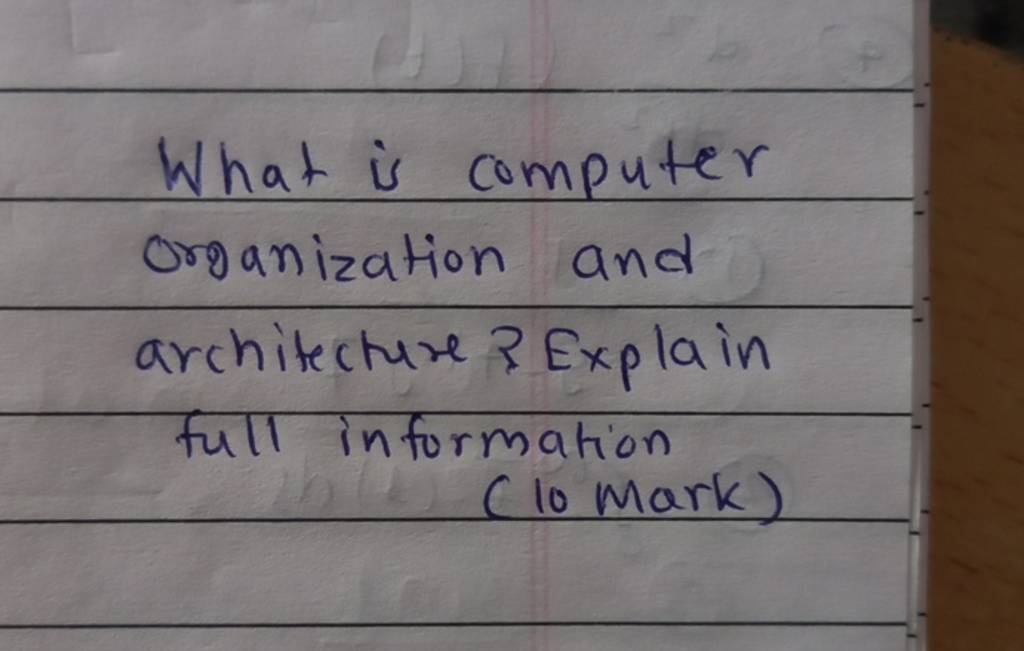 What is computer
organization and
architecture? Explain
full information
(10 Mark)